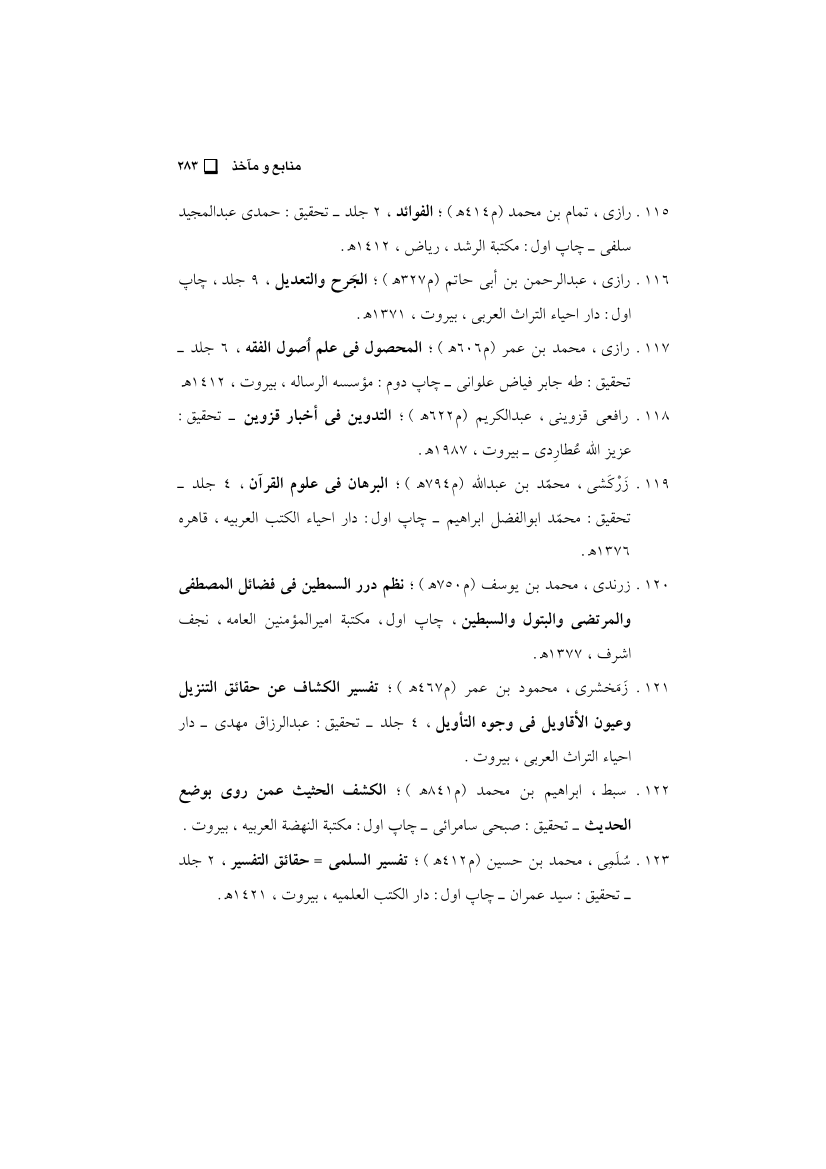 منابع و مآخذ ❑ ٢٨٣
١١٥ . رازى ، تمام بن محمد (م٤١٤ه‍ ) ؛ الفوائد ، ٢ جلد ـ تحقيق : حمدى عبدالمجيد
سلفى ـ چاپ اول : مكتبة الرشد ، رياض ، ١٤١٢ه‍ .
١١٦ . رازى ، عبدالرحمن بن أبى حاتم (م٣٢٧ه‍ ) ؛ الجَرح والتعديل ، ٩ جلد ، چاپ
اول : دار احياء التراث العربى ، بيروت ، ١٣٧١ه‍ .
١١٧ . رازى ، محمد بن عمر (م٦٠٦ه‍ ) ؛ المحصول فى علم أصول الفقه ، ٦ جلد ـ
تحقيق : طه جابر فياض علوانى ـ چاپ دوم : مؤسسه الرساله ، بيروت ، ١٤١٢ه‍
١١٨ . رافعى قزوينى ، عبدالكريم (م٦٢٢ه‍ ) ؛ التدوين فى أخبار قزوين ـ تحقيق :
عزيز الله عُطارِدى ـ بيروت ، ١٩٨٧ه‍ .
١١٩ . زَرْكَشى ، محمّد بن عبدالله (م٧٩٤ه‍ ) ؛ البرهان فى علوم القرآن ، ٤ جلد ـ
تحقيق : محمّد ابوالفضل ابراهيم ـ چاپ اول : دار احياء الكتب العربيه ، قاهره
١٣٧٦ه‍ .
١٢٠ . زرندى ، محمد بن يوسف (م٧٥٠ه‍ ) ؛ نظم درر السمطين فى فضائل المصطفى
والمرتضى والبتول والسبطين ، چاپ اول ، مكتبة اميرالمؤمنين العامه ، نجف
اشرف ، ١٣٧٧ه‍ .
١٢١ . زَمَخشرى ، محمود بن عمر (م٤٦٧ه‍ ) ؛ تفسير الكشاف عن حقائق التنزيل
وعيون الأقاويل فى وجوه التأويل ، ٤ جلد ـ تحقيق : عبدالرزاق مهدى ـ دار
احياء التراث العربى ، بيروت .
١٢٢ . سبط ، ابراهيم بن محمد (م٨٤١ه‍ ) ؛ الكشف الحثيث عمن روى بوضع
الحديث ـ تحقيق : صبحى سامرائى ـ چاپ اول : مكتبة النهضة العربيه ، بيروت .
١٢٣ . سُلَمِى ، محمد بن حسين (م٤١٢ه‍ ) ؛ تفسير السلمى = حقائق التفسير ، ٢ جلد
ـ تحقيق : سيد عمران ـ چاپ اول : دار الكتب العلميه ، بيروت ، ١٤٢١ه‍ .